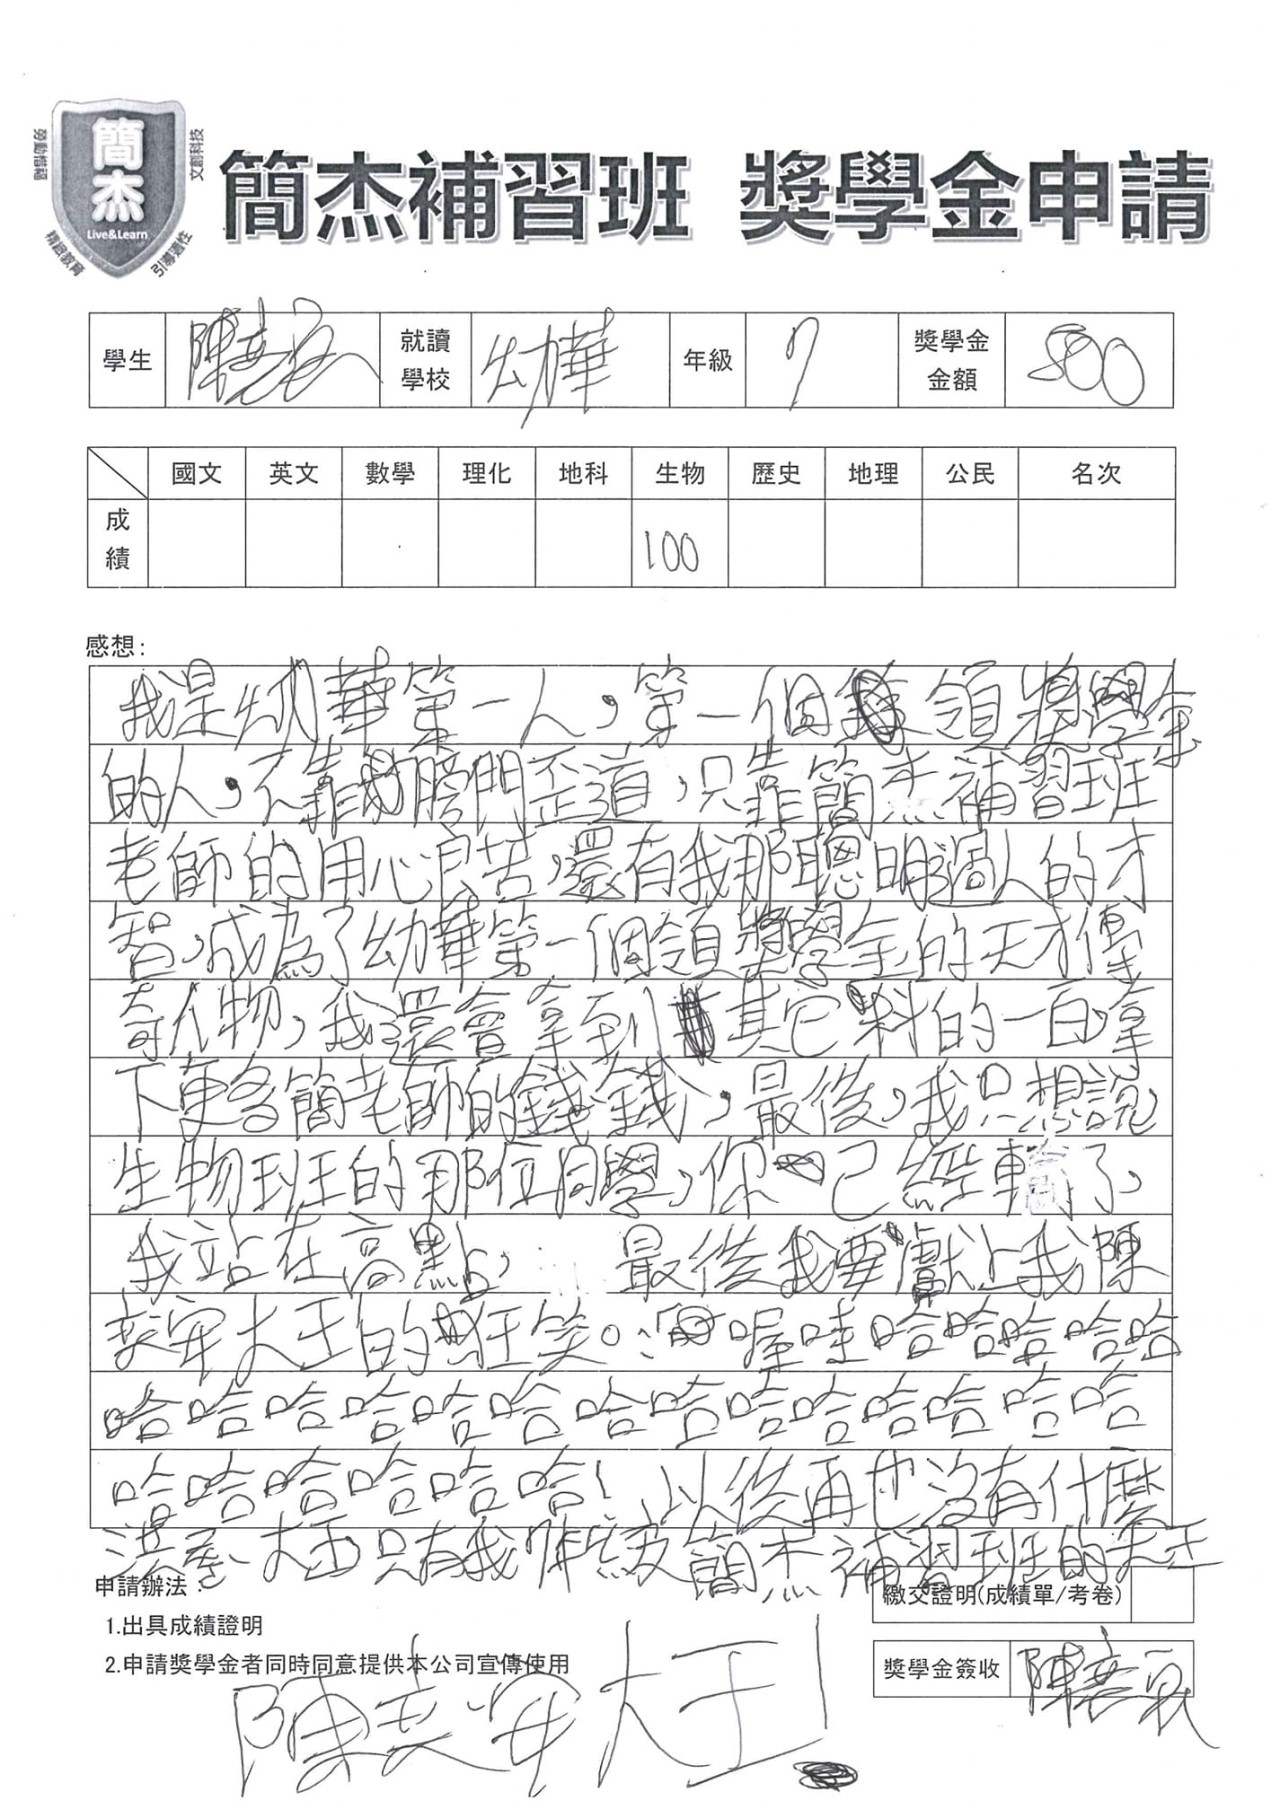 簡杰
Live&Learn
勞動惜福
文創科技
精緻教育
引導適性
簡杰補習班 獎學金申請
學生 陳 就讀學校 幼華 年級 7 獎學金金額 500
國文 英文 數學 理化 地科 生物 歷史 地理 公民 名次
成績 100
感想:
我是幼華第一人,第一個領獎學金
的人,不靠膀門歪道,只靠簡杰補習班
老師的用心良苦,還有我那聰明過人的才
智,成為了幼華第一個領獎學金的天才傳
奇人物,我還會拿到其它科的一百,拿
下更多簡老師的錢錢,最後,我只想說
生物班的那位同學,你已經輸了,
我站在高點, 最後我要獻上我陳
安大王的狂笑。:喔哇哈哈哈哈哈
哈哈哈哈哈哈哈哈哈哈哈哈哈哈
哈哈哈哈哈哈!以後再也沒有什麼
大王只有我簡杰補習班的大王
申請辦法:
1.出具成績證明
2.申請獎學金者同時同意提供本公司宣傳使用
繳交證明(成績單/考卷)
獎學金簽收 陳
陳 安大王!